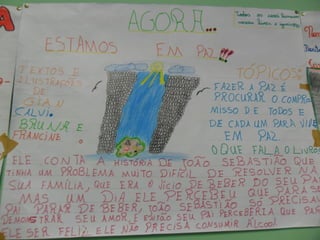 AGORA...
ESTAMOS EM PAZ!!!
TEXTOS E
ILUSTRAÇÕES
DE
GIAN
CALVI
BRUNA E
FRANCINE
TÓPICOS:
FAZER A PAZ É
PROCURAR O COMPRO
MISSO DE TODOS E
DE CADA UM PARA VIVE
EM PAZ
O QUE FALA O LIVRO
ELE CONTA A HISTÓRIA DE JOÃO SEBASTIÃO QUE
TINHA UM PROBLEMA MUITO DIFÍCIL DE RESOLVER NA
SUA FAMÍLIA, QUE ERA O VÍCIO DE BEBER DO SEU PAI
MAS UM DIA ELE PERCEBEU QUE PARA SEU
PAI PARAR DE BEBER, JOÃO SEBASTIÃO SÓ PRECISAV
DEMONSTRAR SEU AMOR, E ENTÃO SEU PAI PERCEBERIA QUE PARA
ELE SER FELIZ ELE NÃO PRECISA CONSUMIR ÁLCOOL